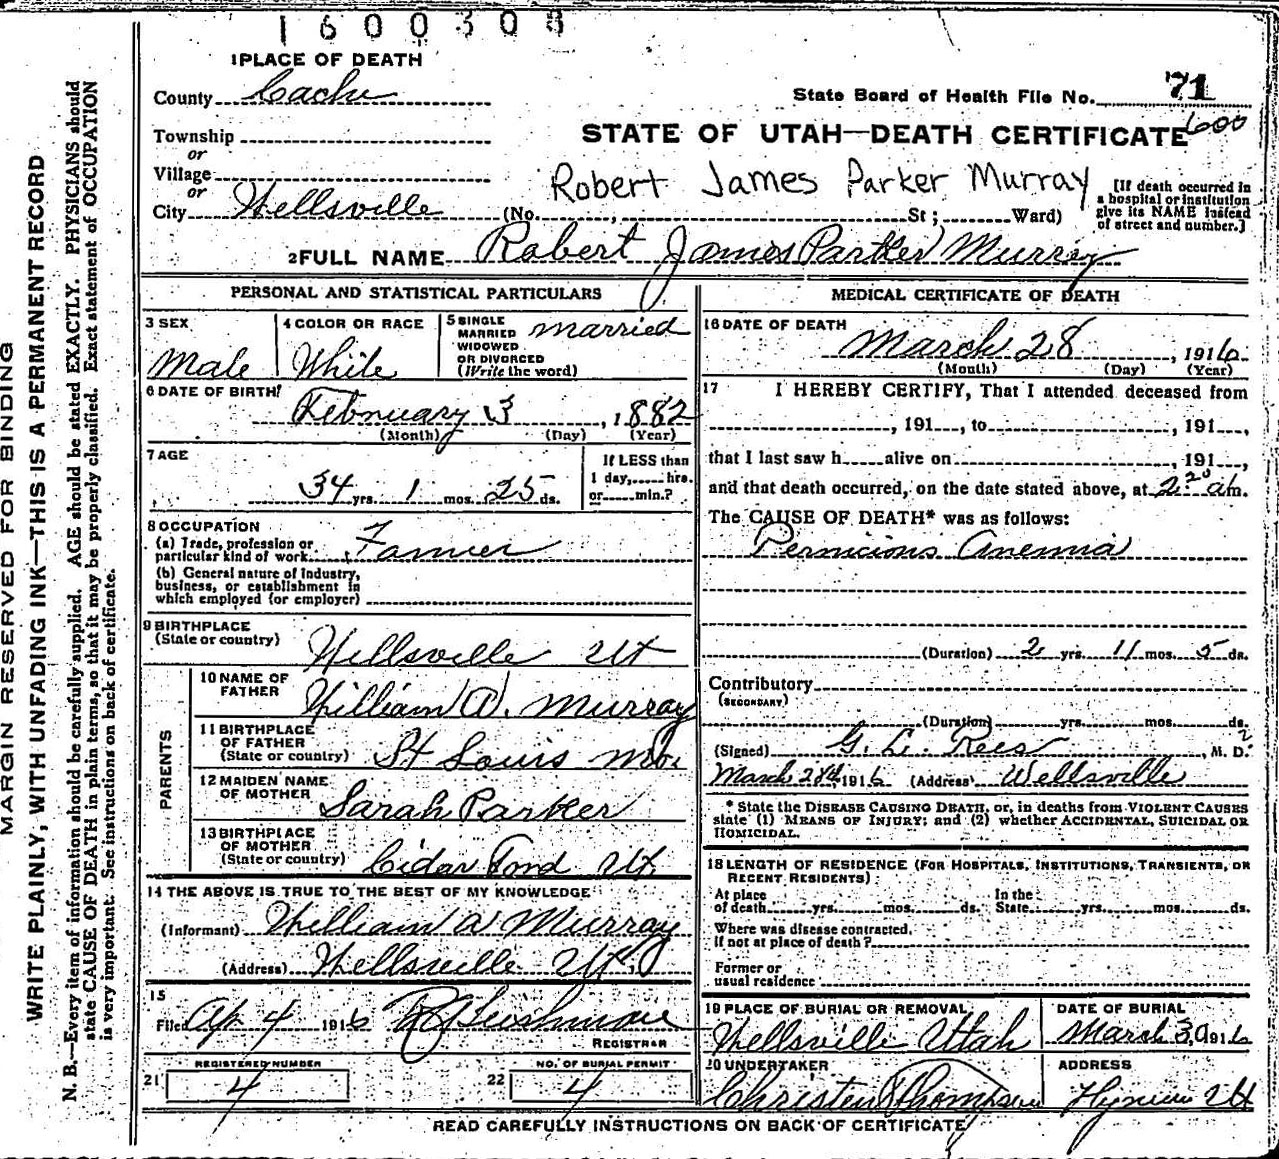 1600308
1 PLACE OF DEATH
County Cache
State Board of Health File No. 71
600
Township
or
Village
or
City Wellsville
STATE OF UTAH—DEATH CERTIFICATE
Robert James Parker Murray
(No. , St ; Ward)
[If death occurred in a hospital or institution give its NAME instead of street and number.]
2 FULL NAME Robert James Parker Murray
PERSONAL AND STATISTICAL PARTICULARS
3 SEX Male
4 COLOR OR RACE White
5 SINGLE MARRIED WIDOWED OR DIVORCED (Write the word) married
6 DATE OF BIRTH February 3, 1882
(Month) (Day) (Year)
7 AGE
34 yrs. 1 mos. 25 ds.
If LESS than 1 day, hrs. or min.?
8 OCCUPATION
(a) Trade, profession or particular kind of work Farmer
(b) General nature of industry, business, or establishment in which employed (or employer)
9 BIRTHPLACE
(State or country) Wellsville Ut
PARENTS
10 NAME OF FATHER William A. Murray
11 BIRTHPLACE OF FATHER
(State or country) St Louis Mo.
12 MAIDEN NAME OF MOTHER Sarah Parker
13 BIRTHPLACE OF MOTHER
(State or country) Cidar Ford Ut.
14 THE ABOVE IS TRUE TO THE BEST OF MY KNOWLEDGE
(Informant) William A Murray
(Address) Wellsville Ut.
15
Filed Ap 4 1916
REGISTRAR
REGISTERED NUMBER
21 4
NO. OF BURIAL PERMIT
22 4
MEDICAL CERTIFICATE OF DEATH
16 DATE OF DEATH
March 28, 1916
(Month) (Day) (Year)
17 I HEREBY CERTIFY, That I attended deceased from
, 191 , to , 191 ,
that I last saw h alive on , 191 ,
and that death occurred, on the date stated above, at 2 20 am.
The CAUSE OF DEATH* was as follows:
Pernicious Anemia
(Duration) 2 yrs. 11 mos. 5 ds.
Contributory
(SECONDARY)
(Duration) yrs. mos. ds.
(Signed) G. L. Rees, M. D.
March 28th, 1916 (Address) Wellsville
* State the DISEASE CAUSING DEATH, or, in deaths from VIOLENT CAUSES
state (1) MEANS OF INJURY; and (2) whether ACCIDENTAL, SUICIDAL OR
HOMICIDAL.
18 LENGTH OF RESIDENCE (FOR HOSPITALS, INSTITUTIONS, TRANSIENTS, OR
RECENT RESIDENTS)
At place of death yrs. mos. ds. In the State yrs. mos. ds.
Where was disease contracted,
If not at place of death?
Former or
usual residence
19 PLACE OF BURIAL OR REMOVAL
Wellsville Utah
DATE OF BURIAL
March 30, 1916
20 UNDERTAKER
Christen Thompson
ADDRESS
Hyrum Ut
READ CAREFULLY INSTRUCTIONS ON BACK OF CERTIFICATE
MARGIN RESERVED FOR BINDING
WRITE PLAINLY, WITH UNFADING INK—THIS IS A PERMANENT RECORD
N. B.—Every item of information should be carefully supplied. AGE should be stated EXACTLY. PHYSICIANS should
state CAUSE OF DEATH in plain terms, so that it may be properly classified. Exact statement of OCCUPATION
is very important. See instructions on back of certificate.